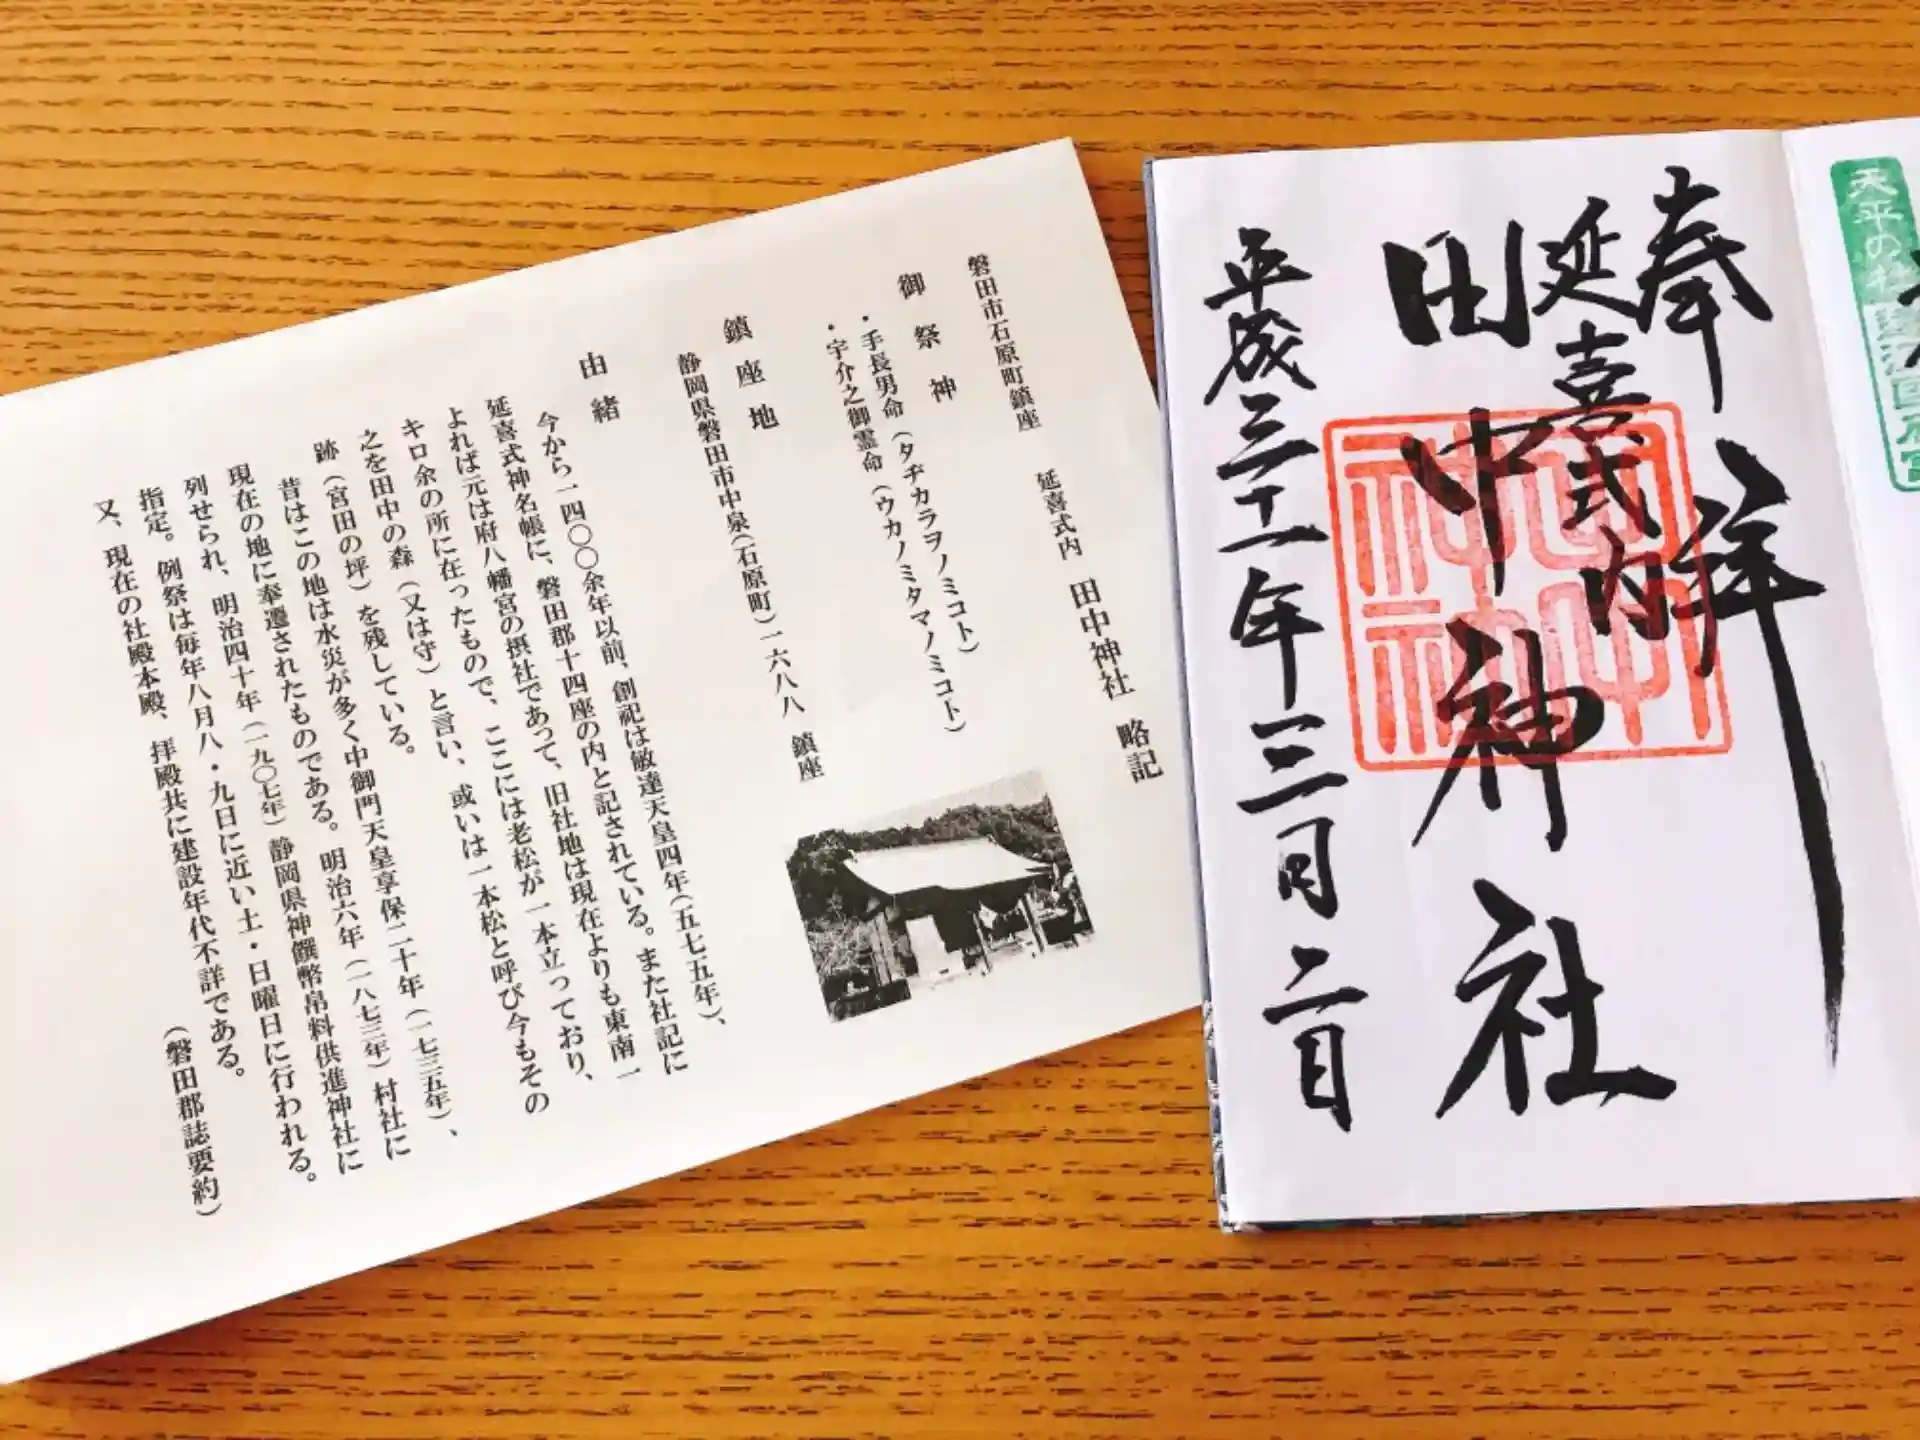 磐田市石原町鎮座 延喜式内 田中神社 略記
御祭神
・手長男命（タヂカラヲノミコト）
・宇介之御霊命（ウカノミタマノミコト）
鎮座地
静岡県磐田市中泉（石原町）一六八八 鎮座
由緒
今から一四〇〇余年以前、創祀は敏達天皇四年（五七五年）、
延喜式神名帳に、磐田郡十四座の内と記されている。また社記に
よれば元は府八幡宮の摂社であって、旧社地は現在よりも東南一
キロ余の所に在ったもので、ここには老松が一本立っており、
之を田中の森（又は守）と言い、或いは一本松と呼び今もその
跡（宮田の坪）を残している。
昔はこの地は水災が多く中御門天皇享保二十年（一七三五年）、
現在の地に奉遷されたものである。明治六年（一八七三年）村社に
列せられ、明治四十年（一九〇七年）静岡県神饌幣帛料供進神社に
指定。例祭は毎年八月八・九日に近い土・日曜日に行われる。
又、現在の社殿本殿、拝殿共に建設年代不詳である。
（磐田郡誌要約）
天平の
国府宮
奉拝
延喜式内
田中神社
田中
神社
平成三十一年三月二日